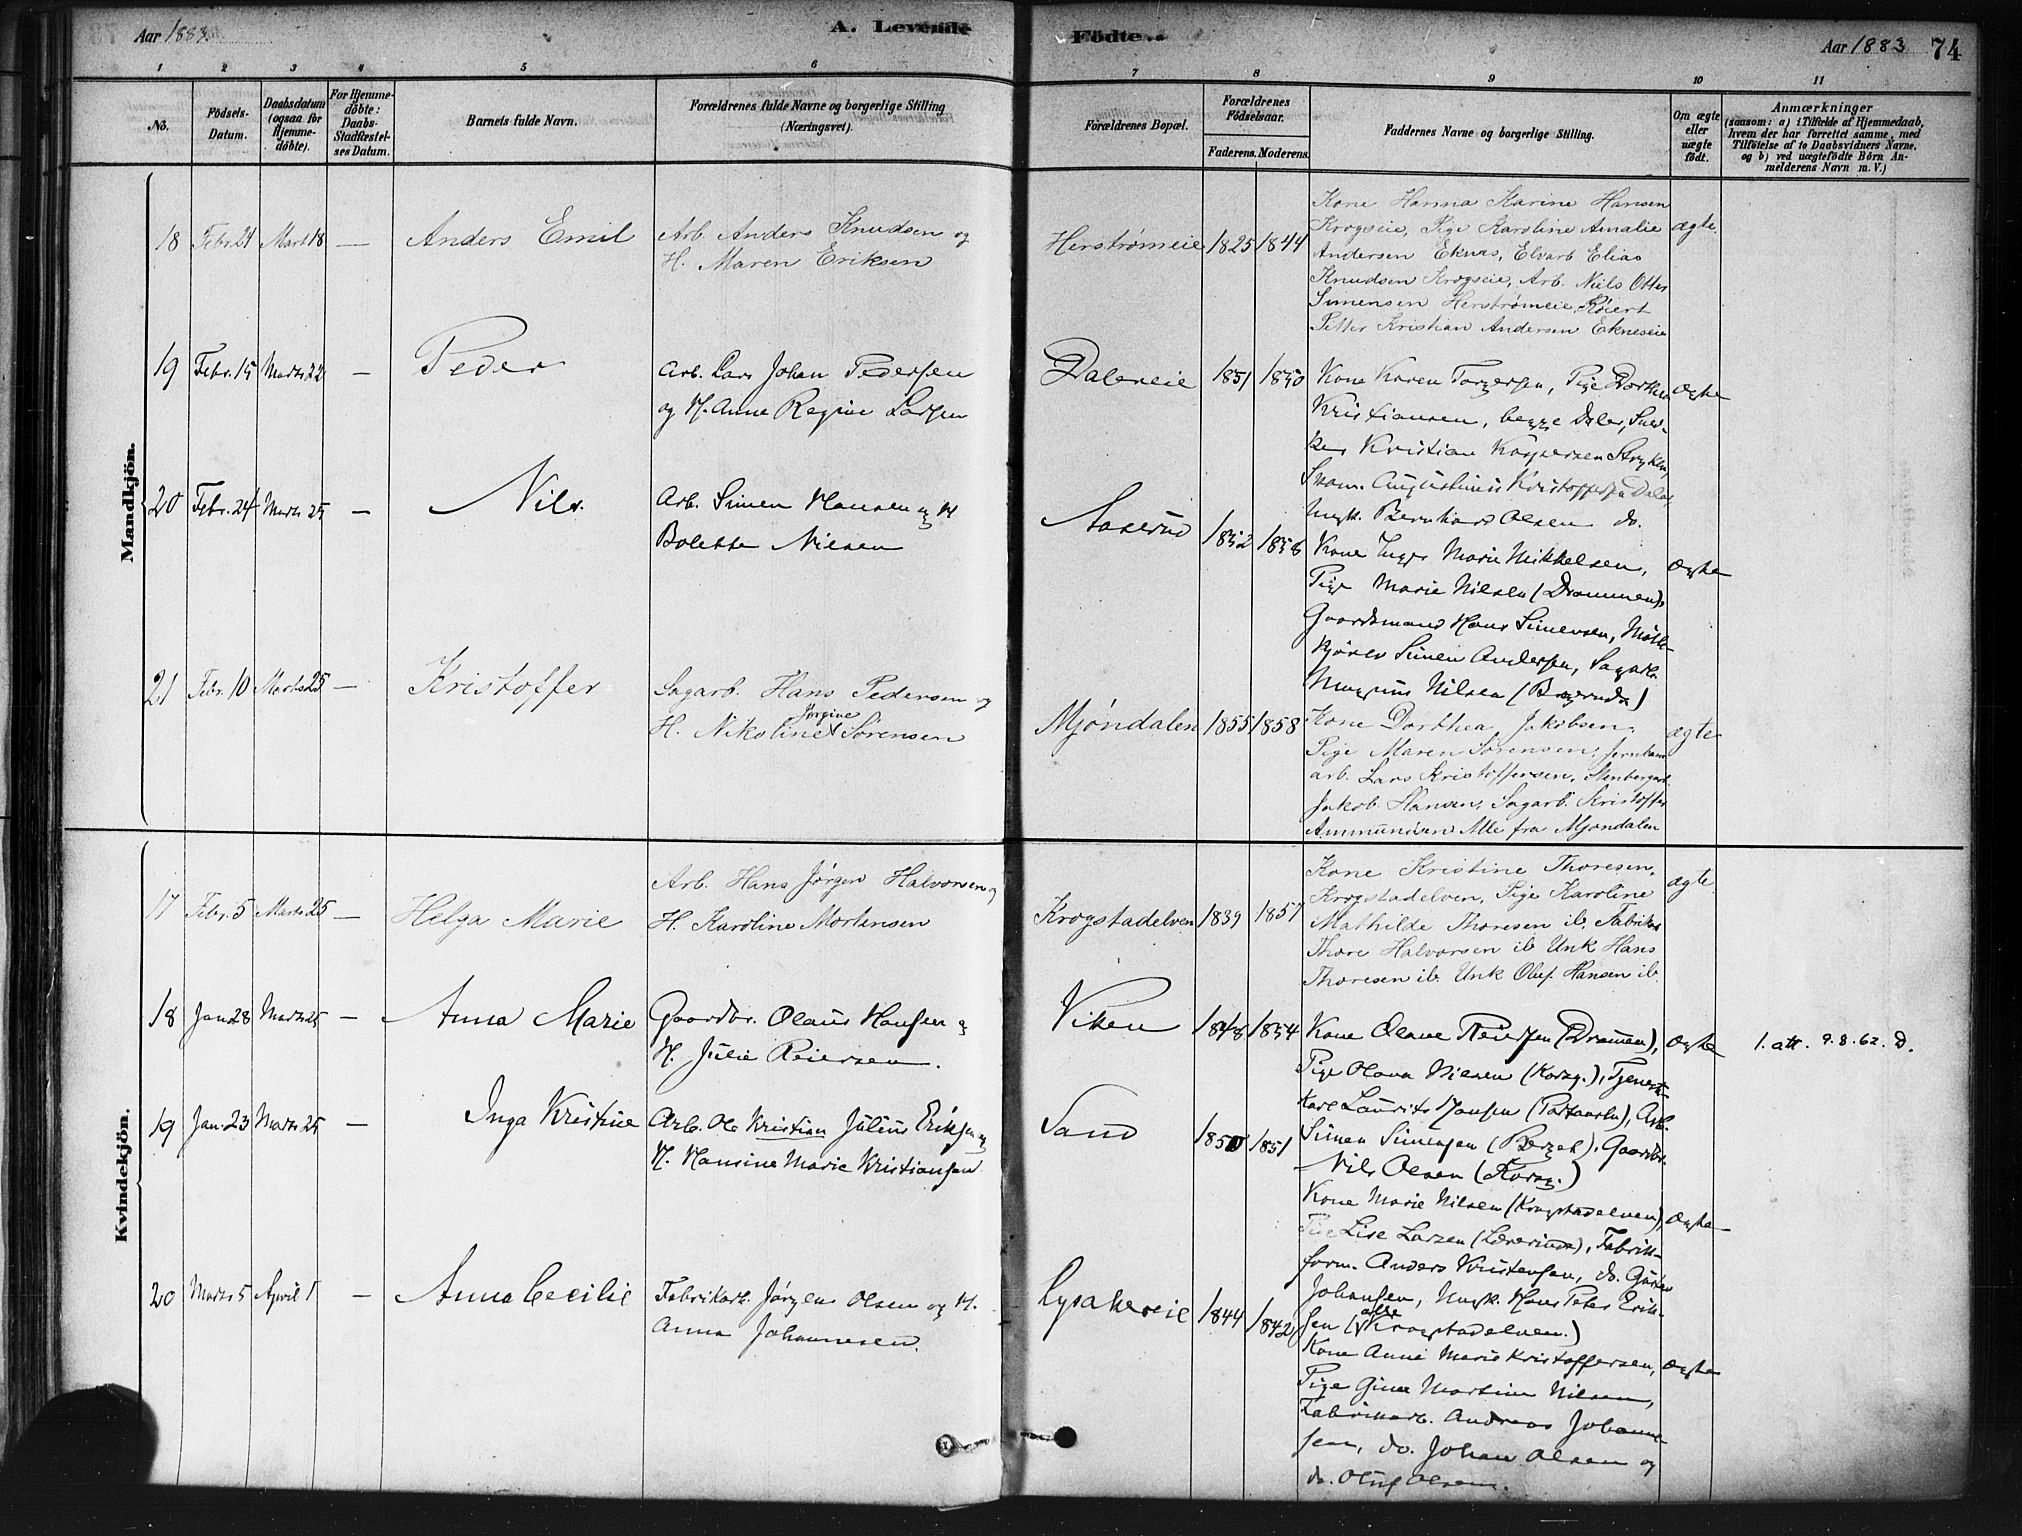 Aar 1883.
A. Levende
Födte..
Aar 1883
74
1 2 3 4 5 6 7 8 9 10 11
No.
Födsels-
Datum.
Daabsdatum
(ogsaa for
Hjemme-
döbte).
For Hjemme-
döbte:
Daabs-
Stadfæstel-
ses Datum.
Barnets fulde Navn.
Forældrenes fulde Navne og borgerlige Stilling
(Næringsvei).
Forældrenes Bopæl.
Forældrenes
Födselsaar.
Faderens. Moderens.
Faddernes Navne og borgerlige Stilling.
Om ægte
eller
uægte
födt.
Anmærkninger
(saasom: a) i Tilfælde af Hjemmedaab,
hvem der har forrettet samme, med
Tilföielse af to Daabsvidners Navne.
og b) ved uægtefödte Börn An-
melderens Navn m. V.)
Mandkjön.
18 Febr. 24 Marts 18 — Anders Emil
Arb. Anders Knudsen og
H. Maren Eriksen
Herstrømeie 1825 1844
Kone Hanna Karine Hansen
Krogseie, Pige Karoline Amalie
Andersen Eknes, Elvarb Elias
Knudsen Krogseie, Arb. Niels Otter
Simensen Herstrømeie,
Petter Kristian Andersen Ekneseie
ægte
19 Febr. 15 Marts 22 — Peder
Arb. Lars Johan Pedersen
og H. Anne Regine Larsen
Dalereie 1851 1850
Kone Karen Torgersen, Pige Dorthea
Kristiansen, begge Daler, Sned-
ker Kristian Kaspersen Stryken,
Skom. Augustinus Kristoffersen Daler,
Ungk. Bernhard Olsen do.
ægte
20 Febr. 24 Marts 25 — Nils
Arb. Simen Hansen og H
Bolette Nilsen
Aaserud 1852 1856
Kone Inger Marie Mikkelsen,
Pige Marie Nilsen (Drammen),
Gaardmand Hans Simensen,
Simen Andersen, Sagarb.
Magnus Nilsen
ægte
21 Febr. 10 Marts 25 — Kristoffer
Sagarb. Hans Pedersen og
H. Nikoline Jørgine Sørensen
Mjøndalen 1855 1858
Kone Dorthea Jakobsen,
Pige Maren Sørensen, Jernbane
arb. Lars Kristoffersen, Stenbergarb.
Jakob Hansen, Sagarb. Kristoffer
Ammundsen Alle fra Mjøndalen
ægte
Kvindekjön.
17 Febr. 5 Marts 25 — Helga Marie
Arb. Hans Jørgen Halvorsen og
H. Karoline Mortensen
Krogstadelven 1839 1857
Kone Kristine Thoresen,
Krogstadelven, Pige Karoline
Mathilde Thoresen ib, Fabrikarb
Thore Halvorsen ib Unk Hans
Thoresen ib. Unk Oluf Hansen ib.
ægte
18 Jan. 28 Marts 25 — Anna Marie
Gaardbr. Olaus Hansen og
H. Julie Reiersen.
Viken 1848 1854
Kone Olave Reiersen (Drammen),
Pige Olava Nilsen (Korsg.), Tjeneste
karl Laurits Hansen, Arb.
Simen Simensen (Berget), Gaardbr.
Nils Olsen (Korsg.)
ægte
1. att. 9.8.62. D.
19 Jan. 23 Marts 25 — Inga Kristine
Arb. Ole Kristian Julius Eriksen og
H. Hansine Marie Kristiansen
Sand 1850 1851
Kone Marie Nilsen (Krogstadelven),
Pige Lise Larsen (Lærerinde), Fabrik-
form. Anders Kristensen, do. Gustav
Johansen, Ungk. Hans Peter Erik-
sen (alle Krogstadelven.)
ægte
20 Marts 5 April 1 — Anna Cecilie
Fabrikarb. Jørgen Olsen og H.
Anna Johannesen.
Lysakereie 1844 1842
Kone Anne Marie Kristoffersen,
Pige Gina Martine Nilsen,
Fabrikarb. Andreas Johanne-
sen, do. Johan Olsen og
do. Oluf Olsen.
ægte